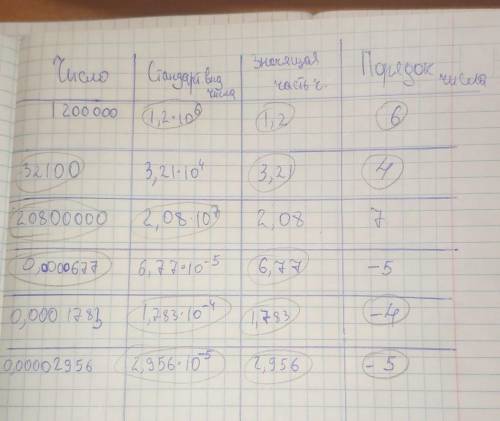 Число Стандарт вид числа Значящая часть ч. Порядок числа
1200000 1,2·10⁶ 1,2 6
32100 3,21·10⁴ 3,21 4
20800000 2,08·10⁷ 2,08 7
0,0000677 6,77·10⁻⁵ 6,77 -5
0,0001783 1,783·10⁻⁴ 1,783 -4
0,00002956 2,956·10⁻⁵ 2,956 -5